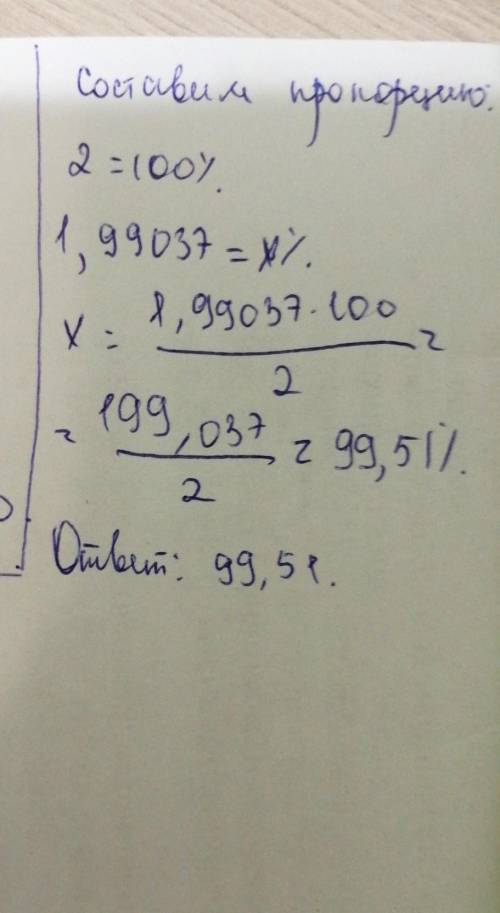 Составим пропорцию:
2 = 100%.
1,99037 = x%.
x = 1,99037 · 100 / 2 =
= 199,037 / 2 = 99,51%.
Ответ: 99,51.